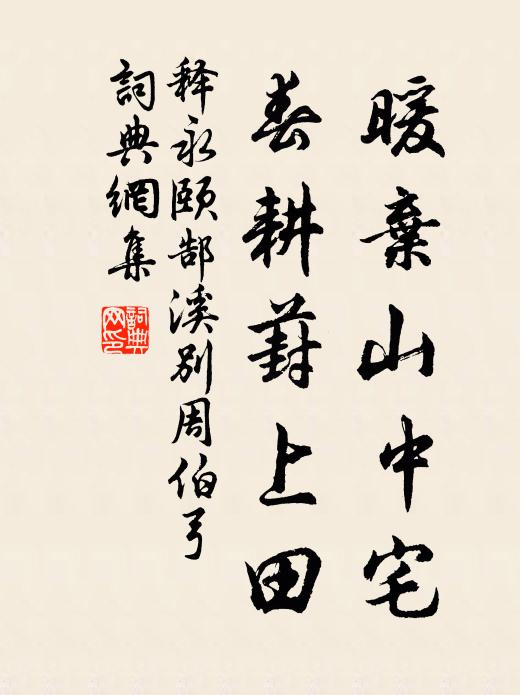 暖棄山中宅
春耕葑上田
释永頤郜溪別周伯弓
詞典網集
詞典网印